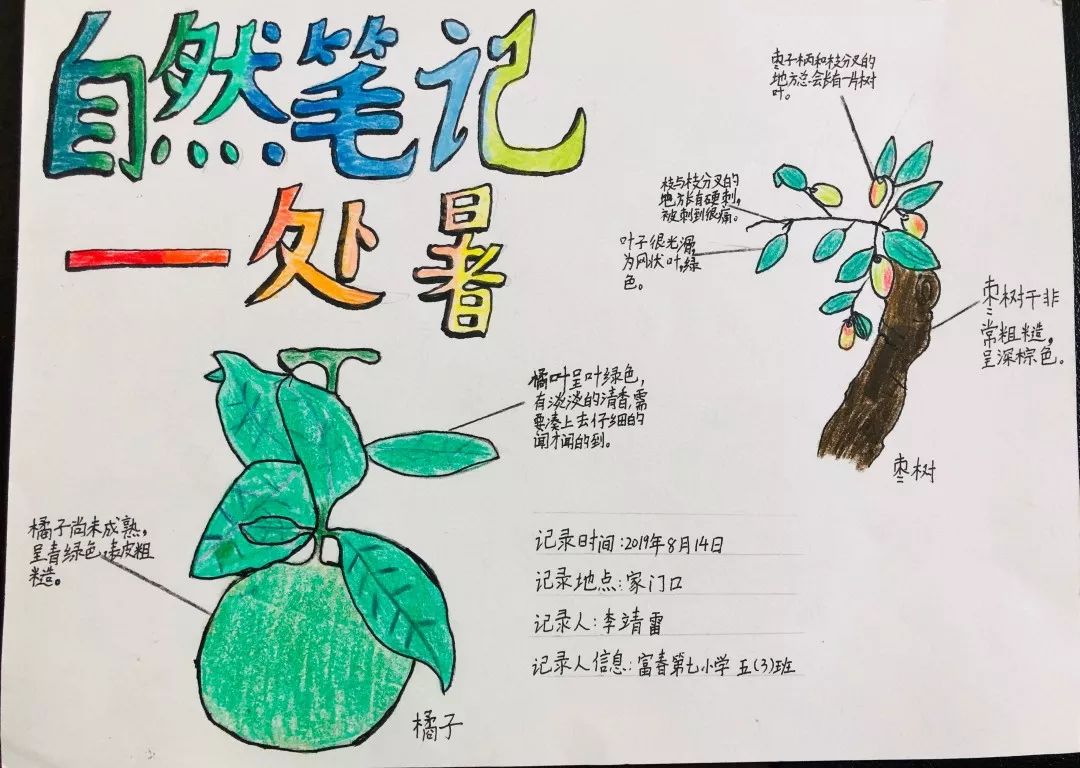 自然笔记
一处暑
枣子柄和枝分叉的
地方总会长有一片树
叶。
枝与枝分叉的
地方长有硬刺,
被刺到很痛。
叶子很光滑,
为网状叶,绿
色。
枣树干非
常粗糙,
呈深棕色。
枣树
橘叶呈叶绿色,
有淡淡的清香,需
要凑上去仔细的
闻才闻的到。
橘子尚未成熟,
呈青绿色,表皮粗
糙。
橘子
记录时间:2019年8月14日
记录地点:家门口
记录人:李靖雷
记录人信息:富春第七小学 五(3)班